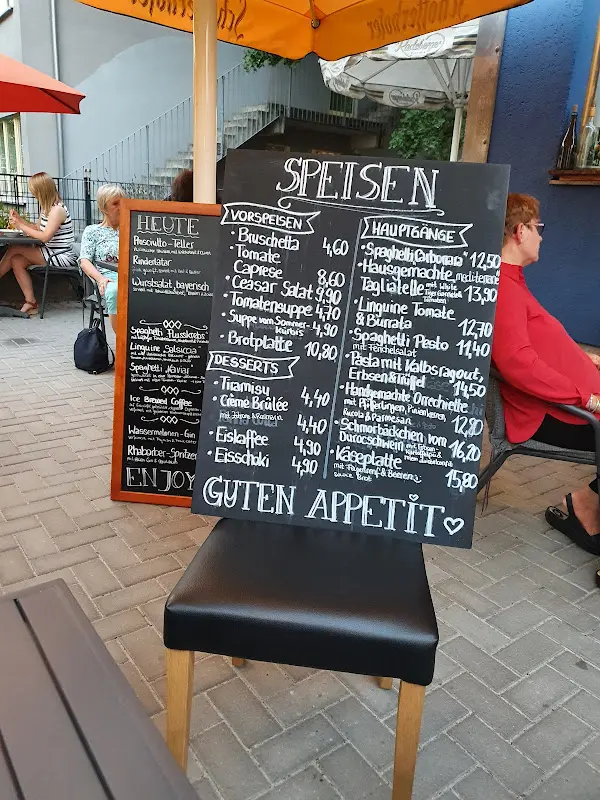 Schöfferhofer
Schöfferhofer
Radeberger
HEUTE
Rindertatar
Wurstsalat, bayerisch
Spaghetti Flusskrebs
Linguine "Salsiccia"
Spaghetti "Kaviar"
Ice Brewed Coffee
Wassermelonen-Gin
Rhabarber-Spritzer
ENJOY
SPEISEN
VORSPEISEN
• Bruschetta 4,60
• Tomate
Caprese 8,60
• Ceasar Salat 9,90
• Tomatensuppe 4,70
• Suppe vom Sommer-
kürbis 4,90
• Brotplatte 10,80
DESSERTS
• Tiramisu 4,40
• Crème Brûlée 4,40
• Eiskaffee 4,90
• Eisschoki 4,90
HAUPTGÄNGE
• Spaghetti "Carbonara" 12,50
• Hausgemachte mediterrane
Tagliatelle mit White
Tiger Garnelen
Tomaten 13,90
• Linguine Tomate
& Burrata 12,70
• Spaghetti Pesto 11,40
mit Fenchelsalat
• Pasta mit Kalbsragout,
Erbsen & Trüffel 14,50
• Hausgemachte Orecchiette
mit Pfifferlingen, Pinienkernen,
Rucola & Parmesan 12,80
• Schmorbäckchen vom
Durocschwein 16,20
• Käseplatte 15,80
mit Feigensenf & Beeren
Brot
GUTEN APPETIT